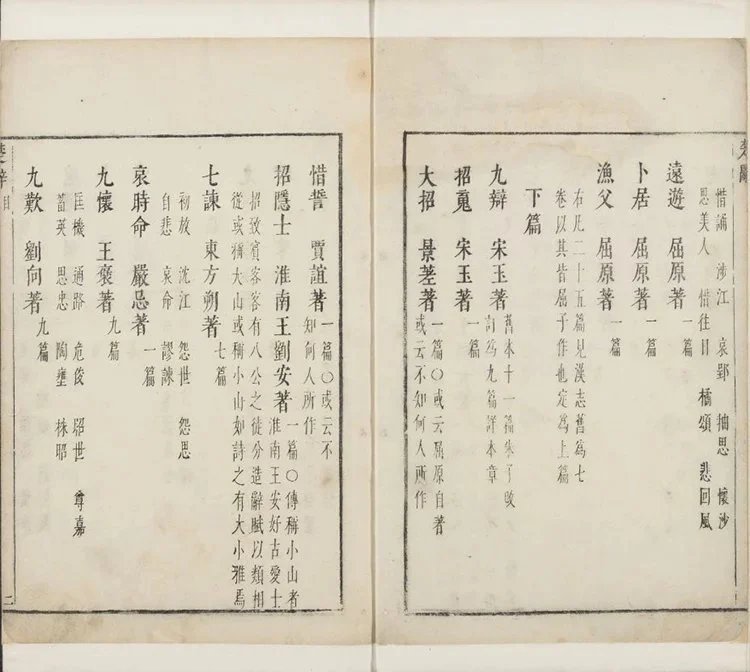 惜誦 涉江 哀郢 抽思 懷沙
思美人 惜往日 橘頌 悲回風
遠遊 屈原著 一篇
卜居 屈原著 一篇
漁父 屈原著 一篇
右凡二十五篇見漢志舊為七
卷以其皆屈子作也定為上篇
下篇
九辯 宋玉著 舊本十一篇朱子改
訂為九篇詳本章
招䰟 宋玉著 一篇
大招 景差著 一篇〇或云屈原自著
或云不知何人所作
惜誓 賈誼著 一篇〇或云不
知何人所作
招隱士 淮南王劉安著 一篇〇傳稱小山者
淮南王安好古愛士
招致賓客客有八公之徒分造辭賦以類相
從或稱大山或稱小山如詩之有大小雅焉
七諫 東方朔著 七篇
初放 沈江 怨世 怨思
自悲 哀命 謬諫
哀時命 嚴忌著 一篇
九懷 王褒著 九篇
匡機 通路 危俊 昭世 尊嘉
蓄英 思忠 陶壅 株昭
九歎 劉向著 九篇
目 二